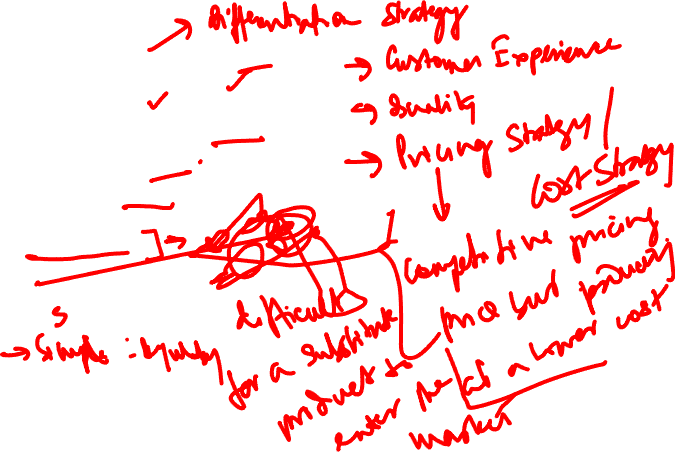 Differentiation Strategy
→ Customer Experience
→ Quality
→ Pricing Strategy / Cost Strategy
Competitive pricing
but producing
at a lower cost
S
→ Simple :
difficult
for a substitute
product to
enter the
market